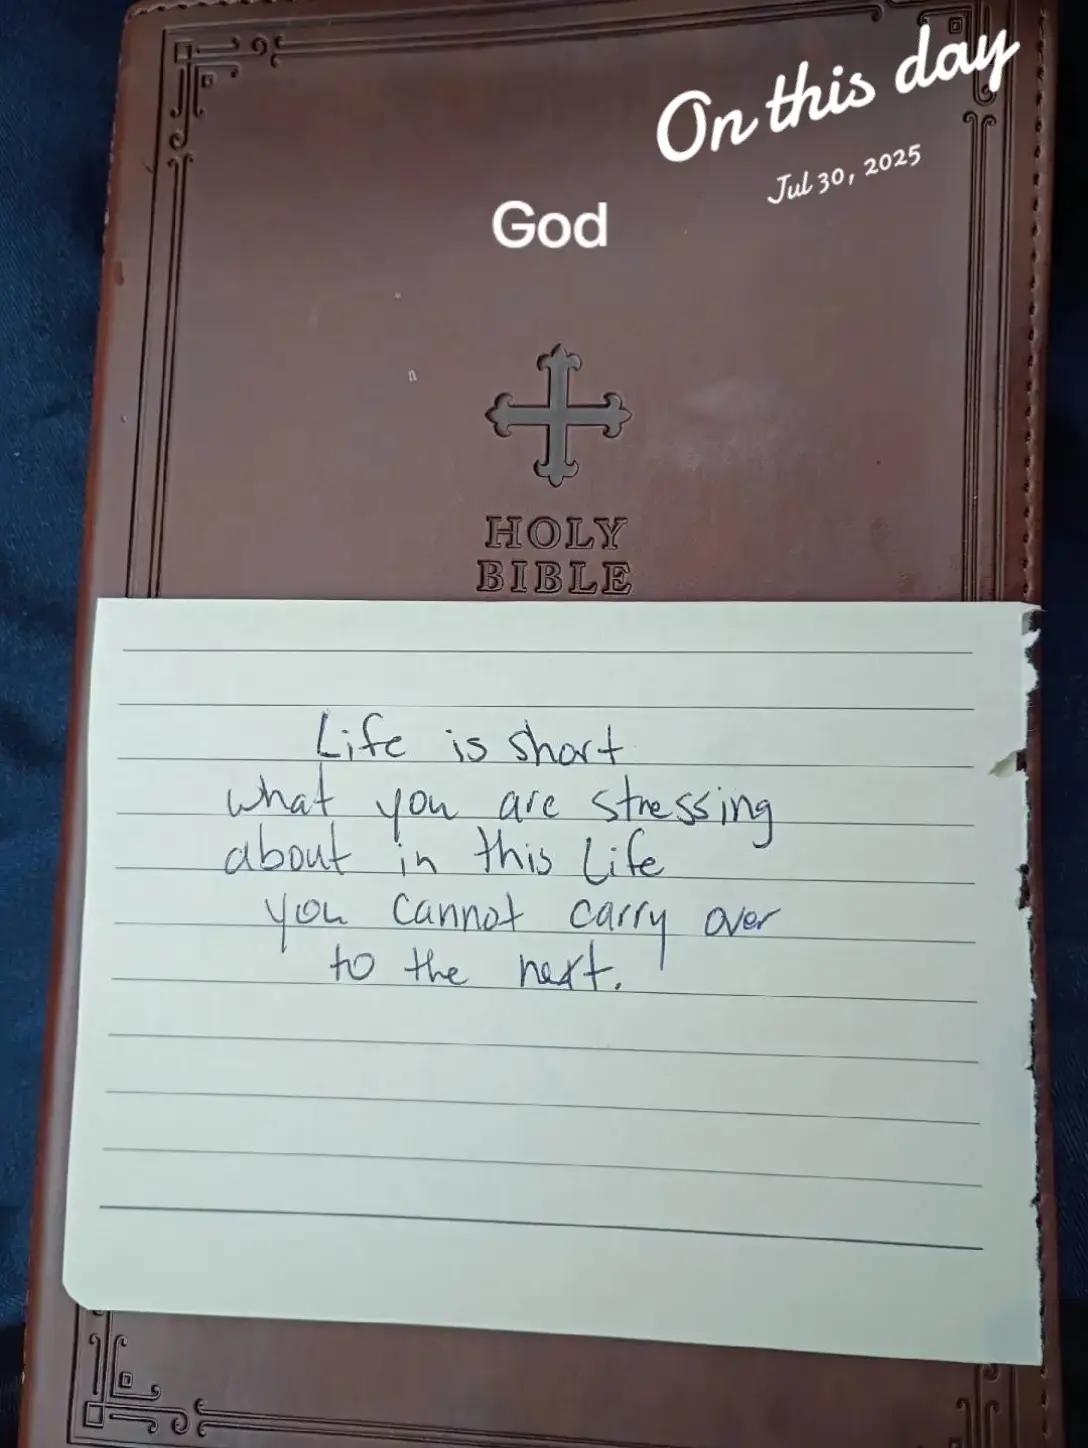 On this day
Jul 30, 2025
God
HOLY
BIBLE
Life is short
what you are stressing
about in this Life
you cannot carry over
to the next.